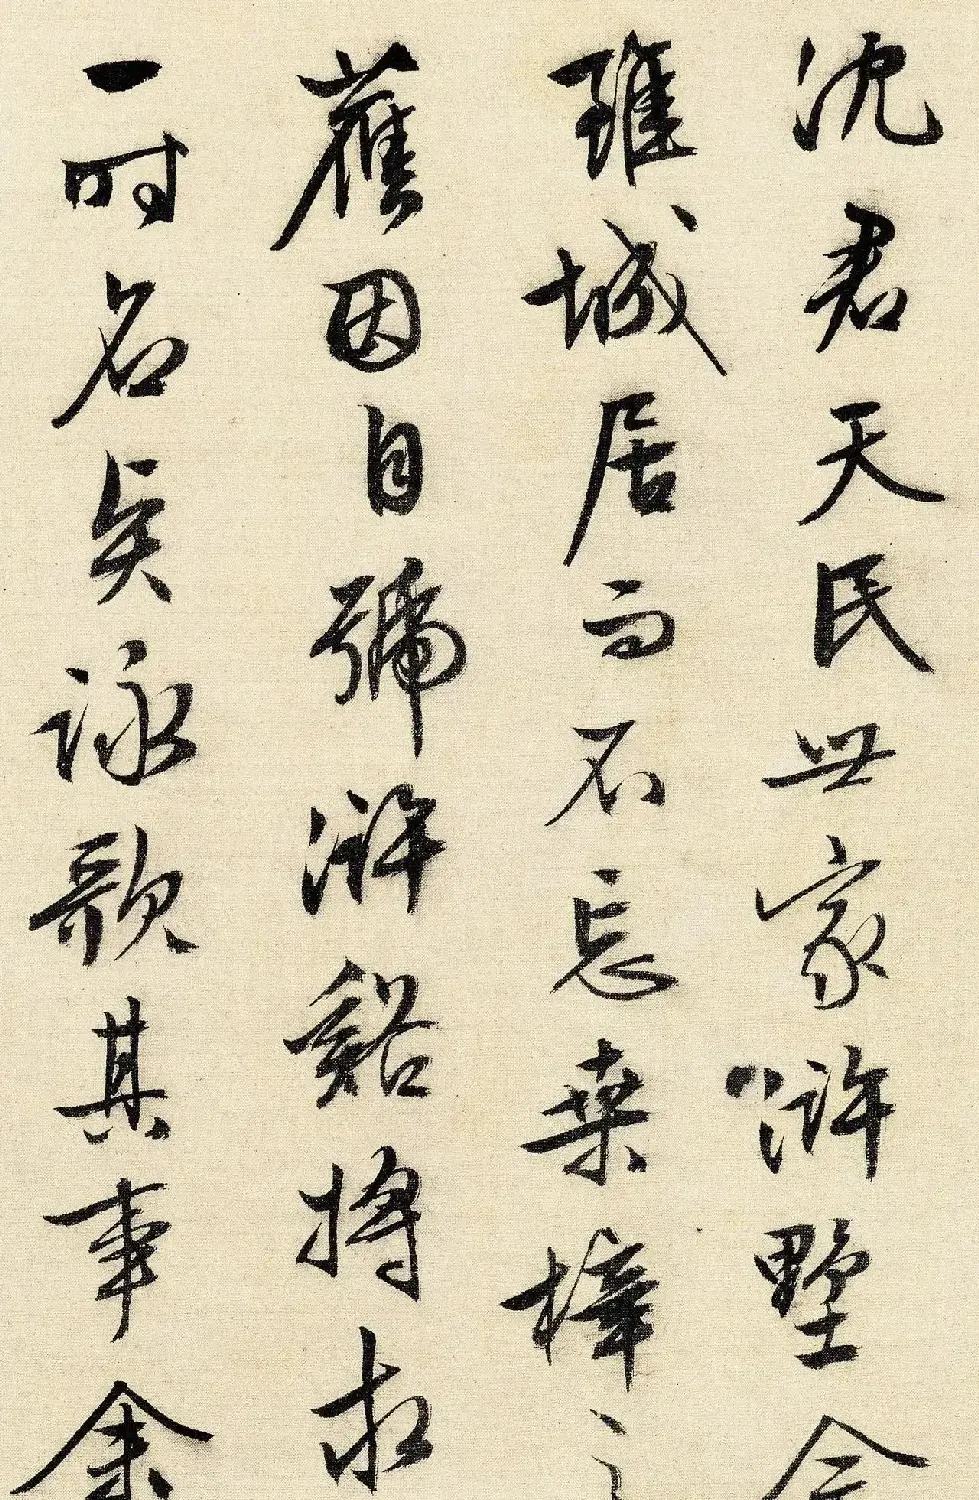 沈君天民世家滸墅今
雖城居而不忘桒梓之
舊因自號滸谿將求
一時名公詠歌其事余